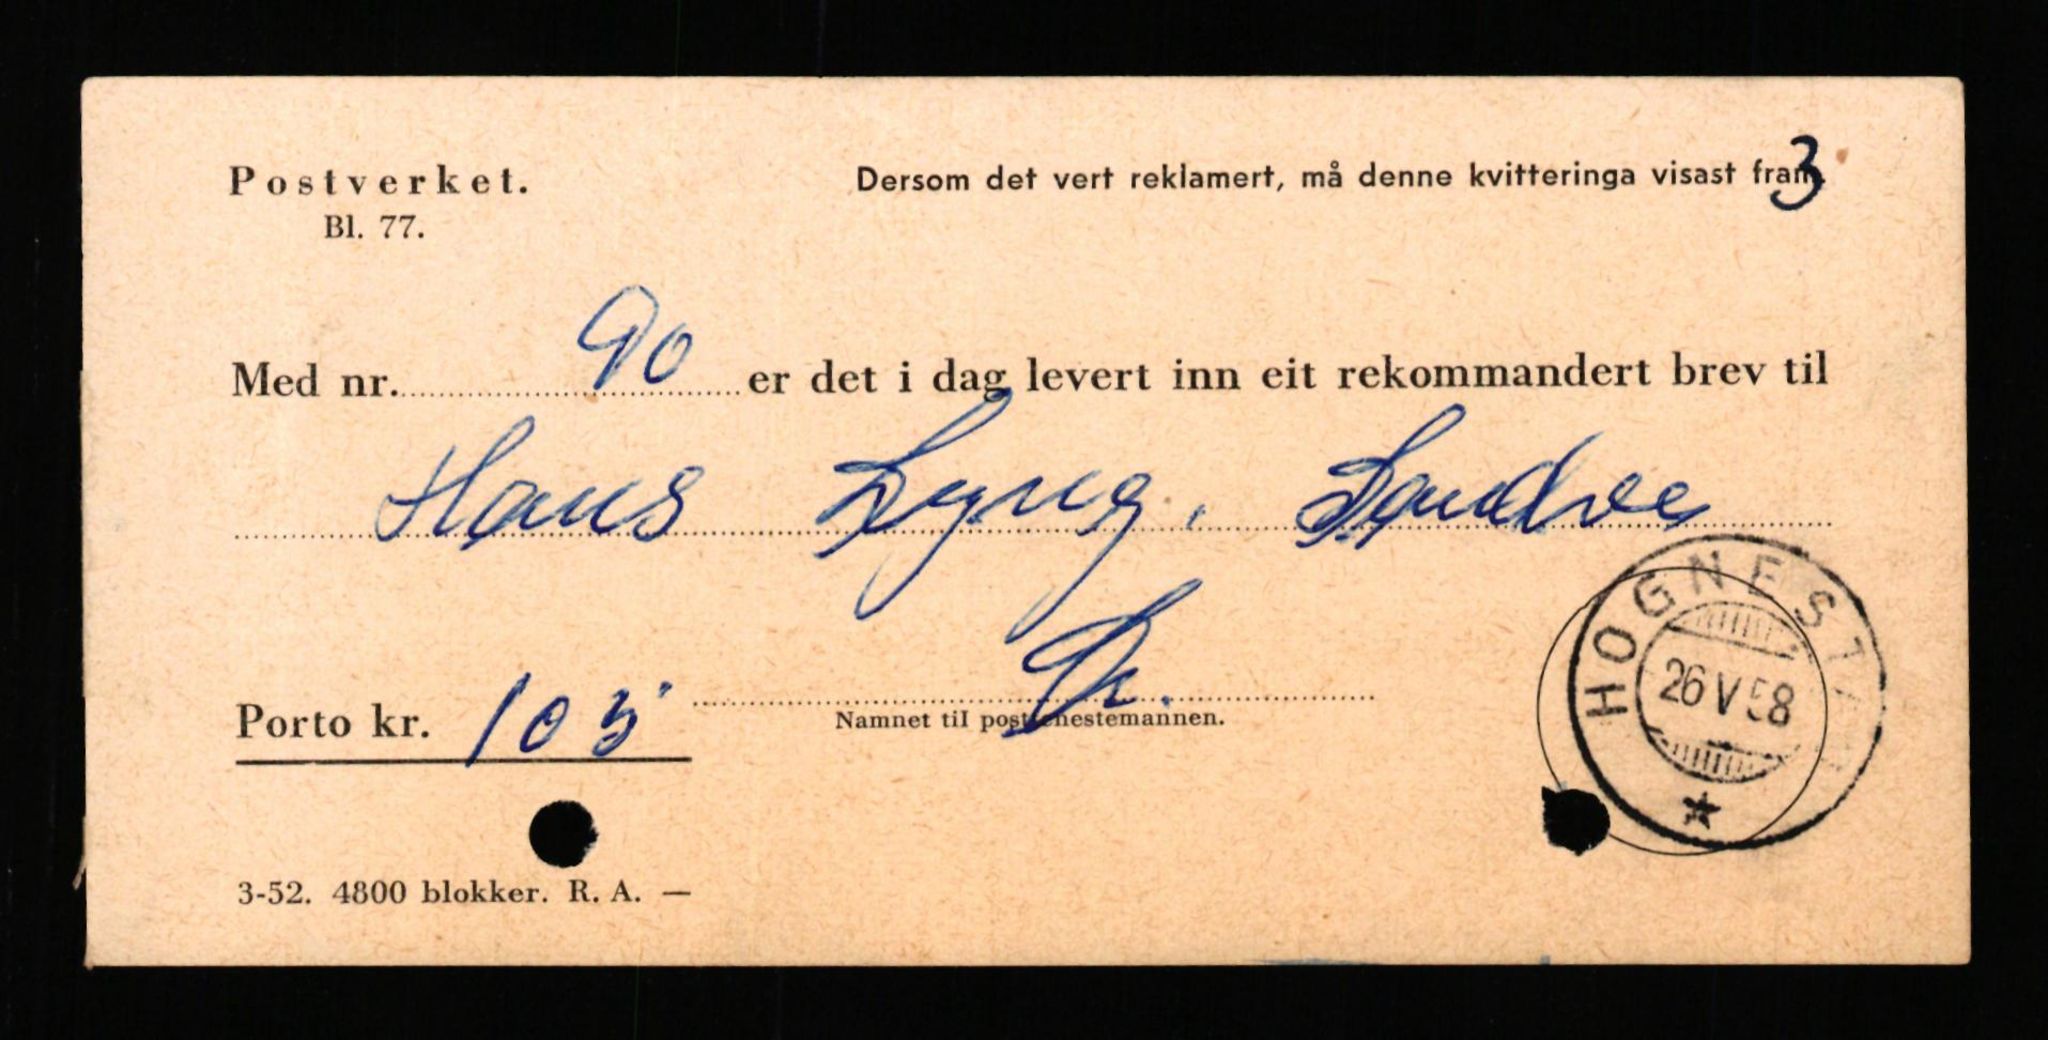 Postverket.
Bl. 77.
Dersom det vert reklamert, må denne kvitteringa visast fram.
3
Med nr. 90 er det i dag levert inn eit rekommandert brev til
Hans Lyng, Sandve
Porto kr. 105
Namnet til posttenestemannen.
HOGNESTAD
26 V 58
3-52. 4800 blokker. R. A. —